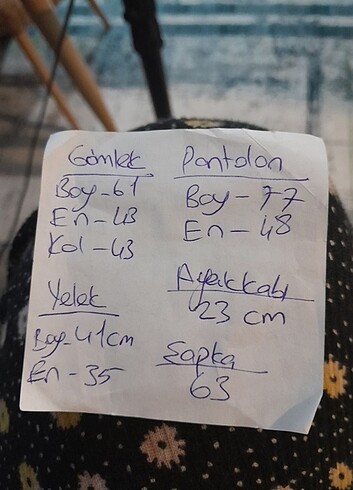 Gömlek
Boy-61
En-43
Kol-43
Pantolon
Boy-77
En-48
Yelek
Boy-41cm
En-35
Ayakkabı
23 cm
Şapka
63